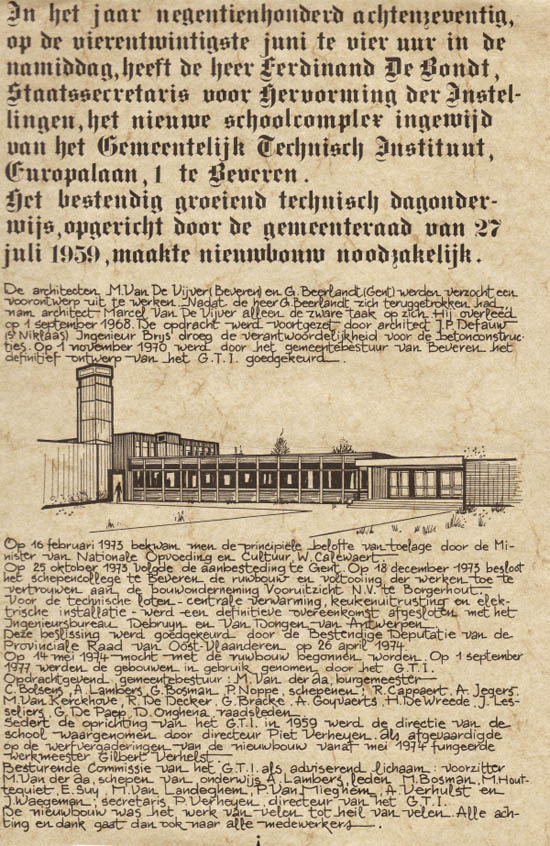 In het jaar negentienhonderd achtenzeventig,
op de vierentwintigste juni te vier uur in de
namiddag, heeft de heer Ferdinand De Bondt,
Staatssecretaris voor Hervorming der Instel-
lingen, het nieuwe schoolcomplex ingewijd
van het Gemeentelijk Technisch Instituut,
Europalaan, 1 te Beveren.
Het bestendig groeiend technisch dagonder-
wijs, opgericht door de gemeenteraad van 27
juli 1959, maakte nieuwbouw noodzakelijk.
De architecten M. Van De Vijver (Beveren) en G. Beerlandt (Gent) werden verzocht een
voorontwerp uit te werken. Nadat de heer G. Beerlandt zich teruggetrokken had
nam architect Marcel Van De Vijver alleen de zware taak op zich. Hij overleed
op 1 september 1968. De opdracht werd voortgezet door architect J.P. Defauw
(St Niklaas) Ingenieur Brijs droeg de verantwoordelijkheid voor de betonconstruc-
ties. Op 1 november 1970 werd door het gemeentebestuur van Beveren het
definitief ontwerp van het G.T.I. goedgekeurd.
Op 16 februari 1973 bekwam men de principiële belofte van toelage door de Mi-
nister van Nationale Opvoeding en Cultuur, W. Calewaert.
Op 25 oktober 1973 volgde de aanbesteding te Gent. Op 18 december 1973 besloot
het schepencollege te Beveren de ruwbouw en voltooiing der werken toe te
vertrouwen aan de bouwonderneming Vooruitzicht N.V. te Borgerhout.
Voor de technische loten - centrale verwarming, keukenuitrusting en elek-
trische installatie - werd een definitieve overeenkomst afgesloten met het
Ingenieursbureau Debruyn en Van Dongen van Antwerpen.
Deze beslissing werd goedgekeurd door de Bestendige Deputatie van de
Provinciale Raad van Oost-Vlaanderen op 26 april 1974.
Op 14 mei 1974 mocht met de ruwbouw begonnen worden. Op 1 september
1977 werden de gebouwen in gebruik genomen door het G.T.I.
Opdrachtgevend gemeentebestuur: M. Van der aa, burgemeester
C. Bolsens, A. Lambers, G. Bosman, P. Noppe, schepenen; R. Cappaert, A. Jegers,
M. Van Kerckhove, R. De Decker, G. Bracke, A. Goyvaerts, H. De Wreede, J. Les-
seliers, G. De Paep, D. Onghena, raadsleden.
Sedert de oprichting van het G.T.I. in 1959 werd de directie van de
school waargenomen door directeur Piet Verheyen. Als afgevaardigde
op de werfvergaderingen van de nieuwbouw vanaf mei 1974 fungeerde
werkmeester Gilbert Verhelst.
Besturende Commissie van het G.T.I. als adviserend lichaam: voorzitter
M. Van der aa, schepen van onderwijs A. Lambers, leden, M. Bosman, M. Hout-
tequiet, E. Suy, M. Van Landeghem, P. Van Mieghem, A. Verhulst en
J. Waegeman; secretaris P. Verheyen, directeur van het G.T.I.
De nieuwbouw was het werk van velen tot heil van velen. Alle ach-
ting en dank gaat dan ook naar alle medewerkers.